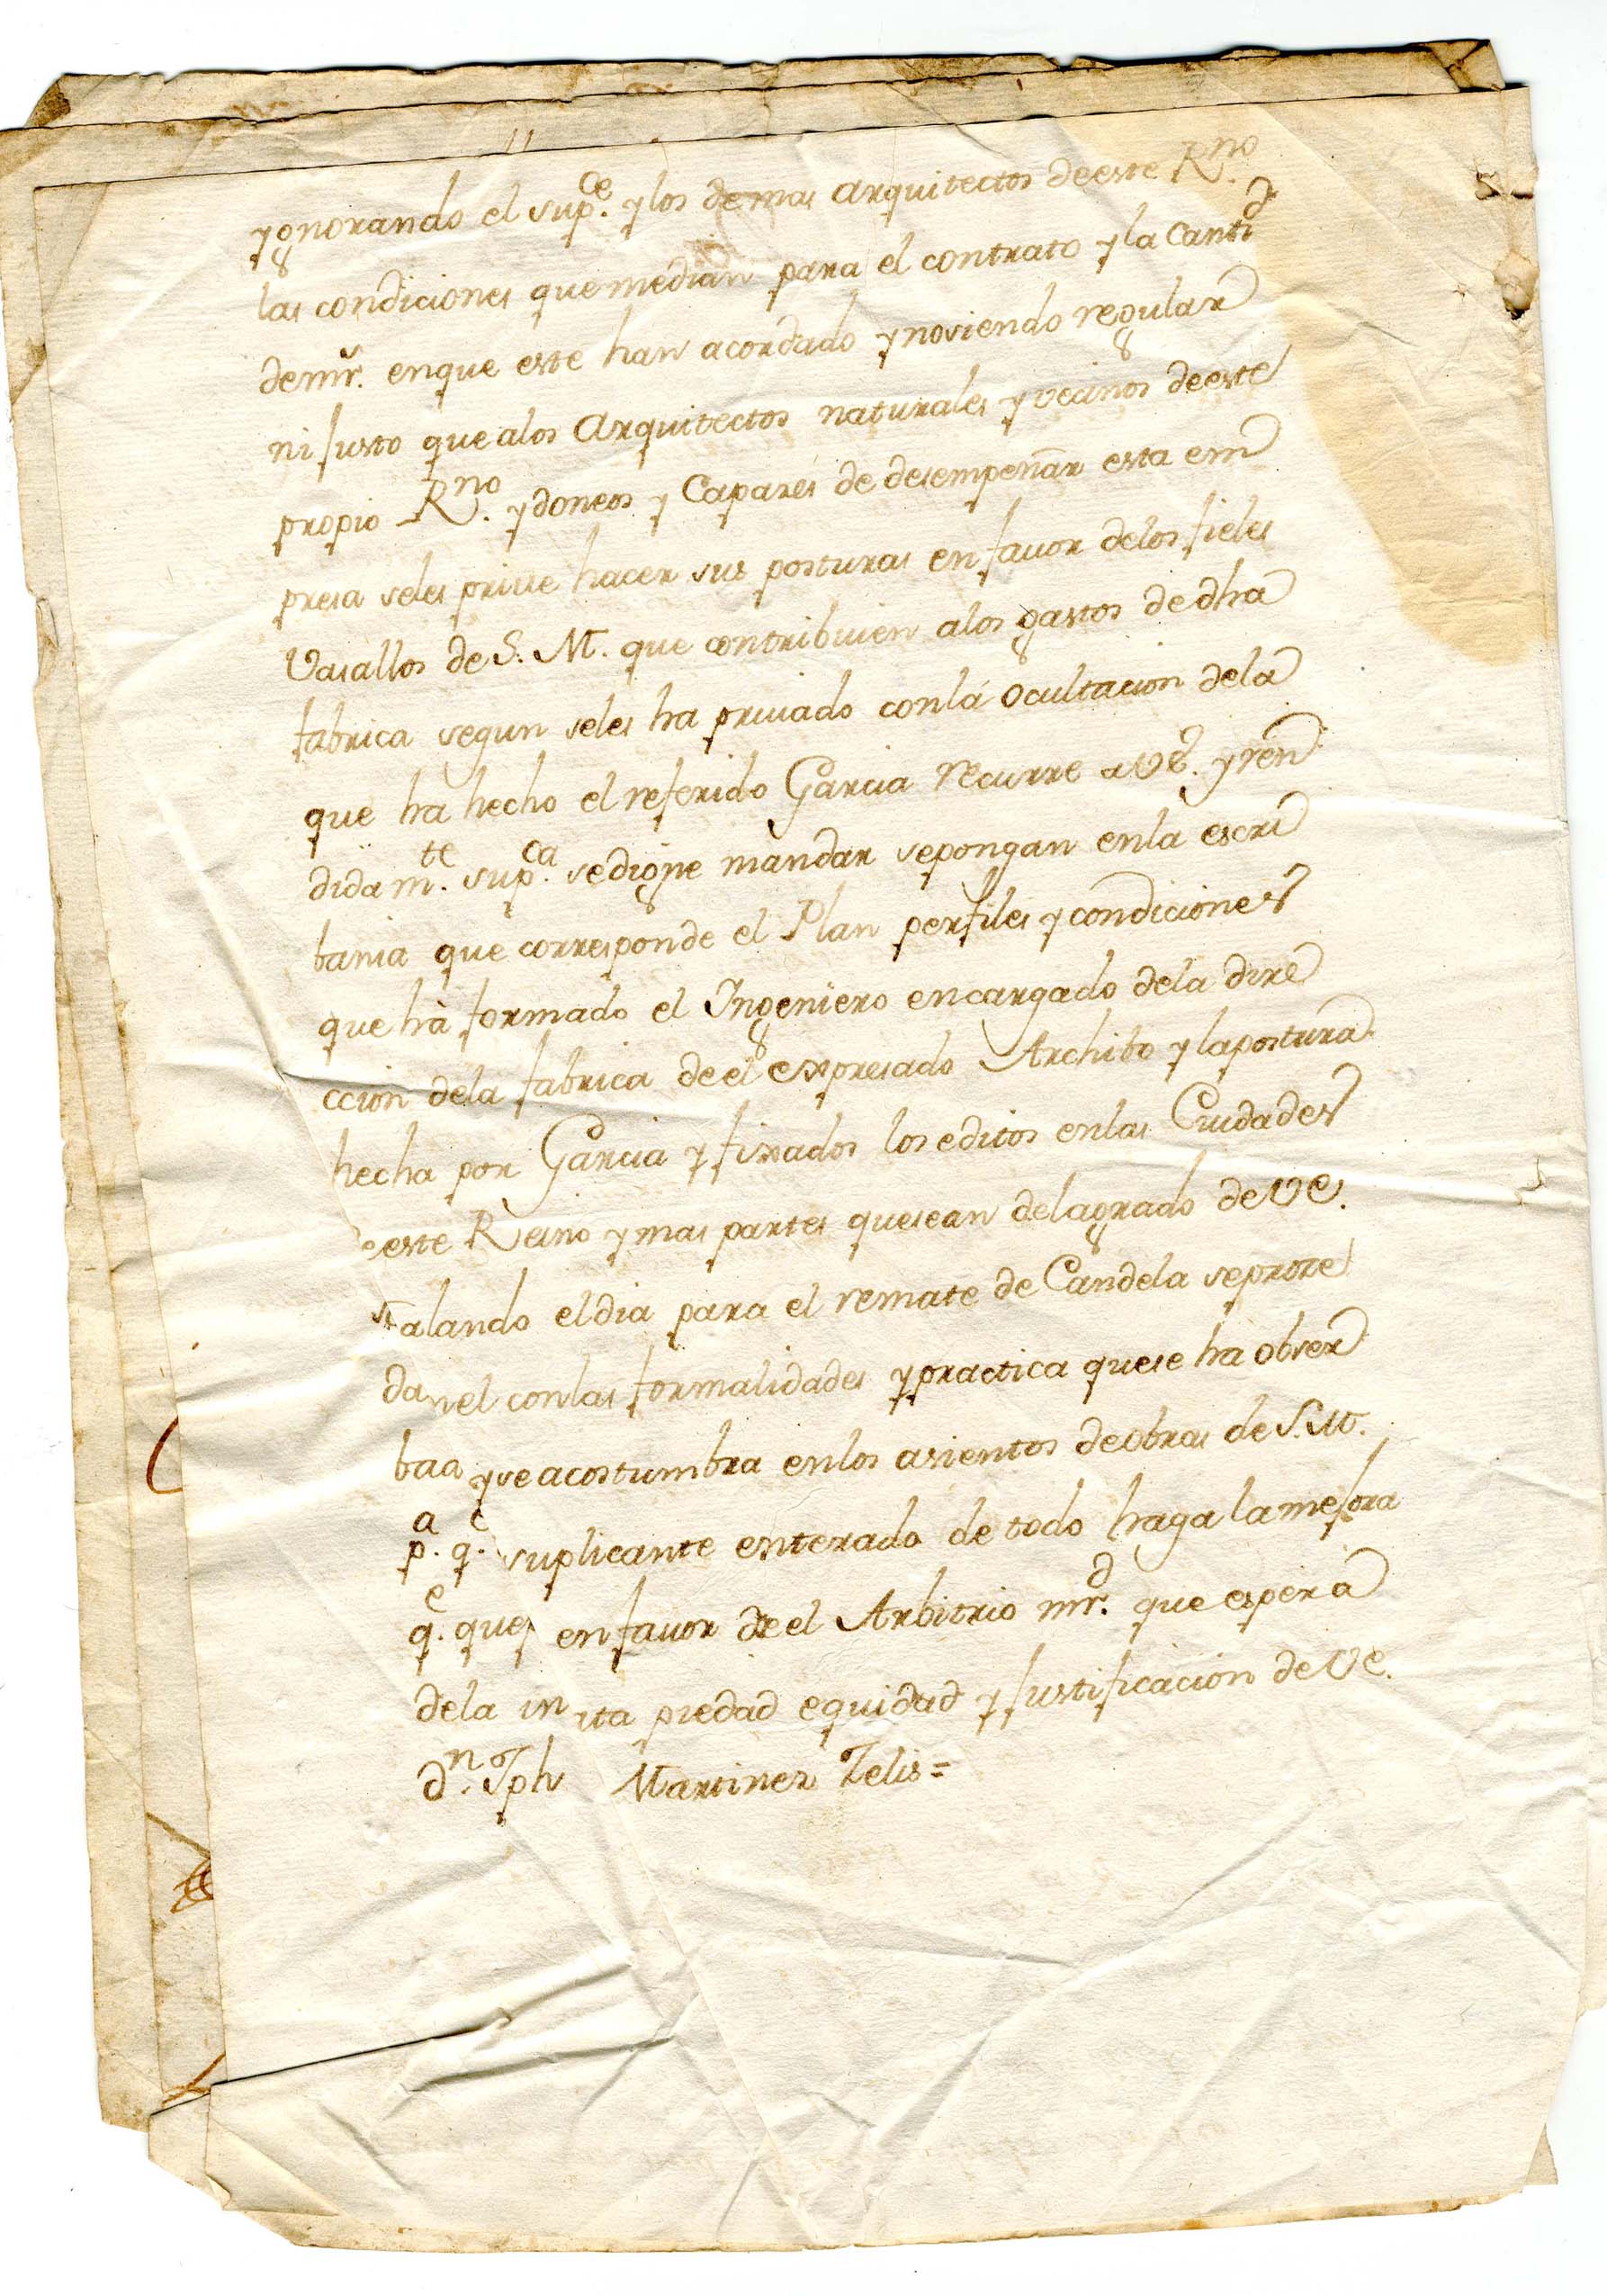 ygnorando el sup.ce y los demas arquitectos de este R.no
las condiciones que median para el contrato y la Cantid
de mr̃. en que este han acordado y no siendo regular
ni justo que a los Arquitectos naturales y vecinos de este
propio R.no ydoneos y Capazes de desempeñar esta em
presa se les prive hacer sus posturas en favor de los fieles
Vasallos de S. M. que contribuien a los gastos de dha
fabrica segun se les ha privado con la ocultacion de la
que ha hecho el referido Garcia recurre a VE. y ren
didam.te sup.ca se digne mandar se pongan en la escri
bania que corresponde el Plan perfiles y condiciones
que ha formado el Ingeniero encargado de la dire
ccion de la fabrica de el expresado Archibo y la postura
hecha por Garcia y fixados los editos en las Ciudades
este Reino y mas partes que sean del agrado de VE.
alando el dia para el remate de Candela se proze
da en el con las formalidades y practica que se ha obser
baa y se acostumbra en los asientos de obras de S. M.
p.a q.e suplicante enterado de todo haga la mejora
q.e que en favor de el Arbitrio mrd. que espera
de la in ita piedad equidad y justificacion de VE.
d.n Jph Martinez Zelis =